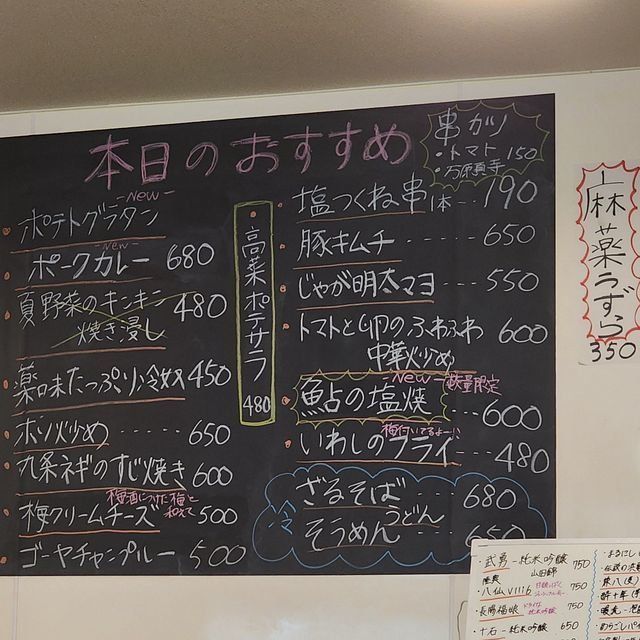 本日のおすすめ
-New-
ポテトグラタン
-New-
ポークカレー 680
夏野菜のキンキン 480
焼き浸し
薬味たっぷり冷奴 450
ホルモン炒め ---- 650
九条ネギのすじ焼き 600
梅酒につけた梅と
和えて
梅クリームチーズ 500
ゴーヤチャンプルー 500
高菜ポテサラ
480
串カツ
・トマト 150
塩つくね串1本-- 190
豚キムチ ----- 650
じゃが明太マヨ --- 550
トマトと卵のふわふわ 600
中華炒め
-New- 数量限定
鮎の塩焼 --- 600
梅付いてるよー!!
いわしのフライ -- 480
冷
ざるそば ---- 680
うどん
そうめん --- 650
麻薬うずら
350
・武勇-純米吟醸 750
山田錦
陸奥
・八仙 V1116 750
・長陽福娘
純米吟醸 750
・十石-純米吟醸 650